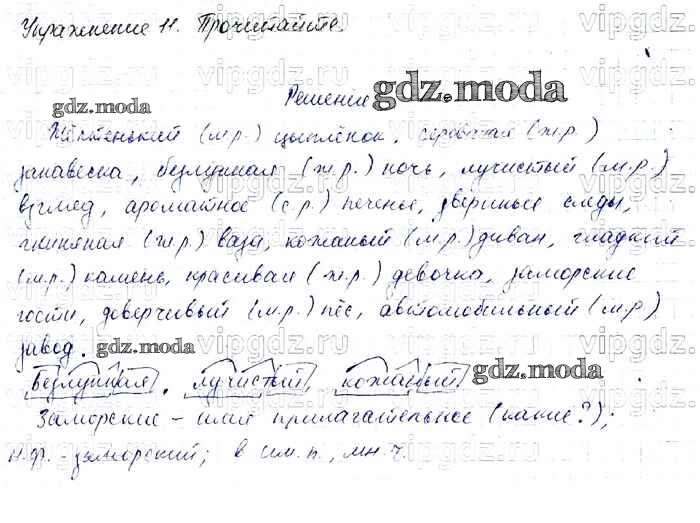 Упражнение 11. Прочитайте.
Решение gdz.moda
gdz.moda
Жёлтенький (м.р.) цыплёнок, сероватая (ж.р.)
занавеска, безлунная (ж.р.) ночь, лучистый (м.р.)
взгляд, ароматное (с.р.) печенье, звериные следы,
глиняная (ж.р.) ваза, кожаный (м.р.) диван, гладкий
(м.р.) камень, красивая (ж.р.) девочка, заморские
гости, доверчивый (м.р.) пёс, автомобильный (м.р.)
завод. gdz.moda
Безлунная, лучистый кожаный gdz.moda
Заморские – имя прилагательное (какие?);
н.ф. – заморский; в им.п., мн.ч.
vipgdz.ru